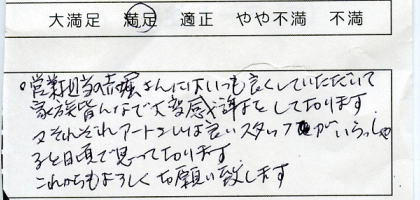 大満足 満足 適正 やや不満 不満
○営業担当の赤堀さんにはいつも良くしていただいて
家族皆んなで大変感謝をしております
又それぞれアートさんは良いスタッフがいらっしゃ
ると日頃で思っております
これからもよろしくお願い致します